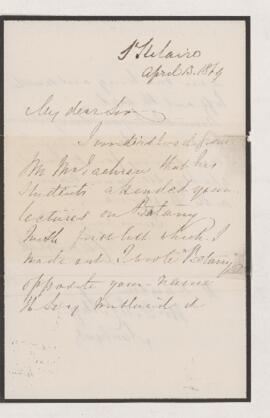 St Hilaire
April 13. 1869
My dear Sir
I understood from
Mr McEachran that his
Students attended your
lectures on Botany
In the list which I
made out I wrote Botany
opposite your name